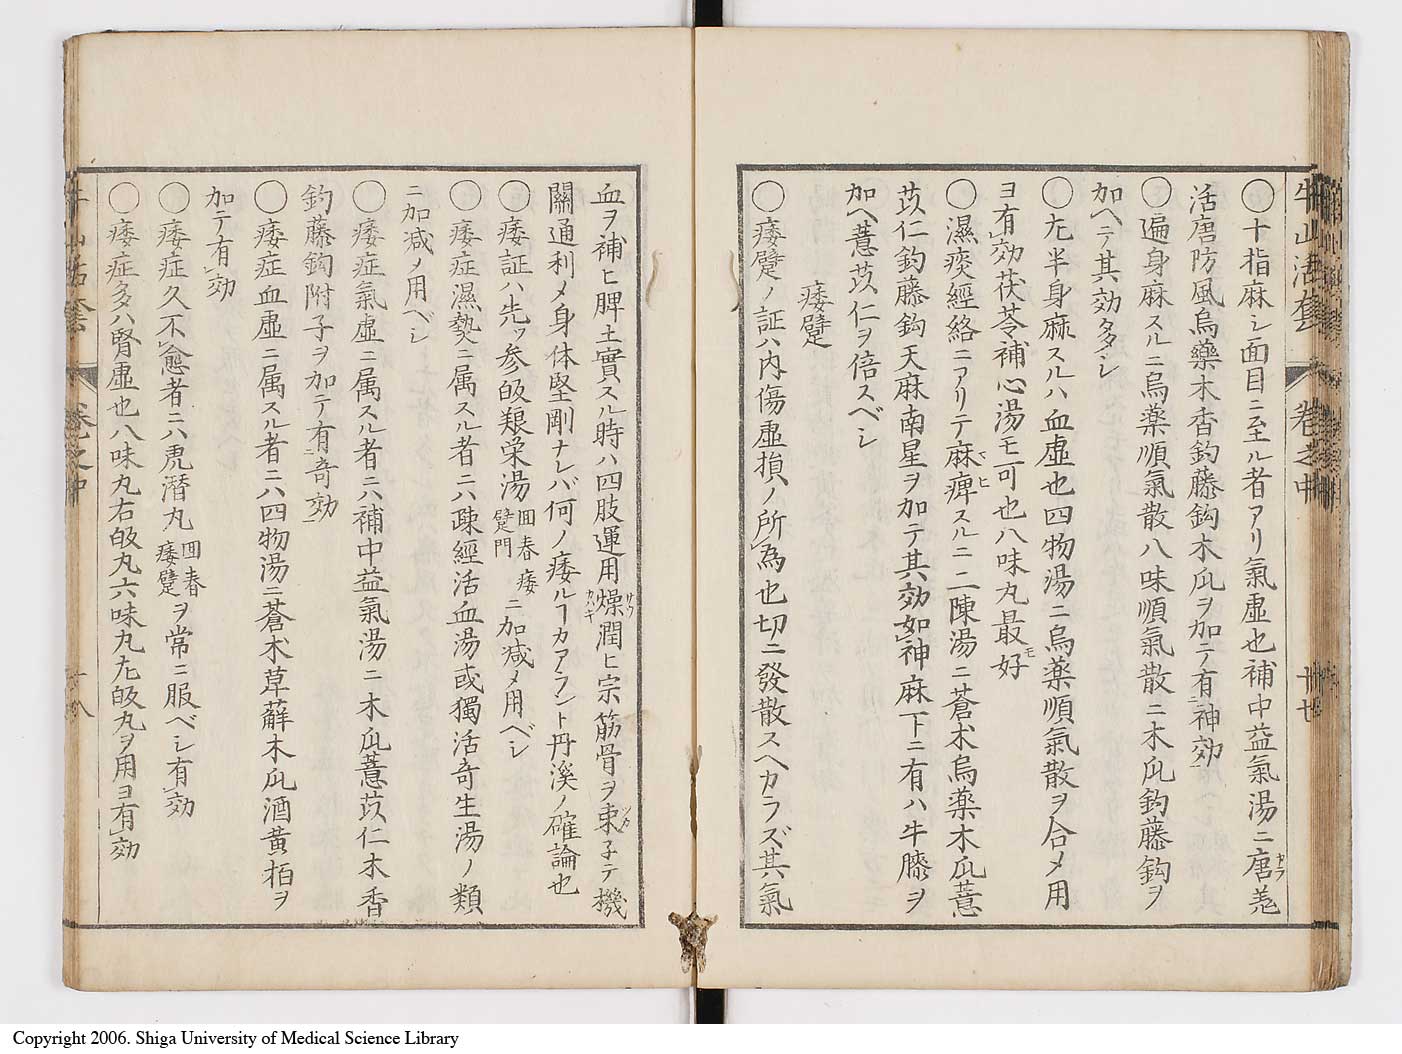 牛山活套 卷之中 廿七
〇十指麻シ面目ニ至ル者アリ氣虛也補中益氣湯ニ唐羗
活唐防風烏藥木香鈎藤鈎木瓜ヲ加ニテ有神効
〇遍身麻スルニ烏薬順氣散八味順氣散ニ木瓜鈎藤鈎ヲ
加ヘテ其効多シ
〇尢半身麻スルハ血虛也四物湯ニ烏薬順氣散ヲ合メ用
ヨ有効茯苓補心湯モ可也八味丸最好
〇濕痰經絡ニアリテ麻痺スルニ二陳湯ニ蒼朮烏薬木瓜薏
苡仁鈎藤鈎天麻南星ヲ加テ其効如神麻下ニ有ハ牛膝ヲ
加ヘ薏苡仁ヲ倍スベシ
痿躄
〇痿躄ノ証ハ内傷虛損ノ所為也切ニ發散スヘカラズ其氣
血ヲ補ヒ脾土實スル時ハ四肢運用燥潤ヒ宗筋骨ヲ束子テ機
關通利メ身体堅剛ナレバ何ノ痿ルヿカアラント丹溪ノ確論也
〇痿証ハ先ツ参皈羪栄湯回春痿躄門ニ加減メ用ベシ
〇痿症濕𤍠ニ属スル者ニハ踈經活血湯或獨活寄生湯ノ類
ニ加減メ用ベシ
〇痿症氣虛ニ属スル者ニハ補中益氣湯ニ木瓜薏苡仁木香
鈎藤鈎附子ヲ加テ有奇効
〇痿症血虛ニ属スル者ニハ四物湯ニ蒼朮草薢木瓜酒黄栢ヲ
加テ有効
〇痿症久不愈者ニハ虎潜丸回春痿躄ヲ常ニ服ベシ有効
〇痿症多ハ腎虛也八味丸右皈丸六味丸左皈丸ヲ用ヨ有効
牛山活套 卷之中 廿八
Copyright 2006. Shiga University of Medical Science Library